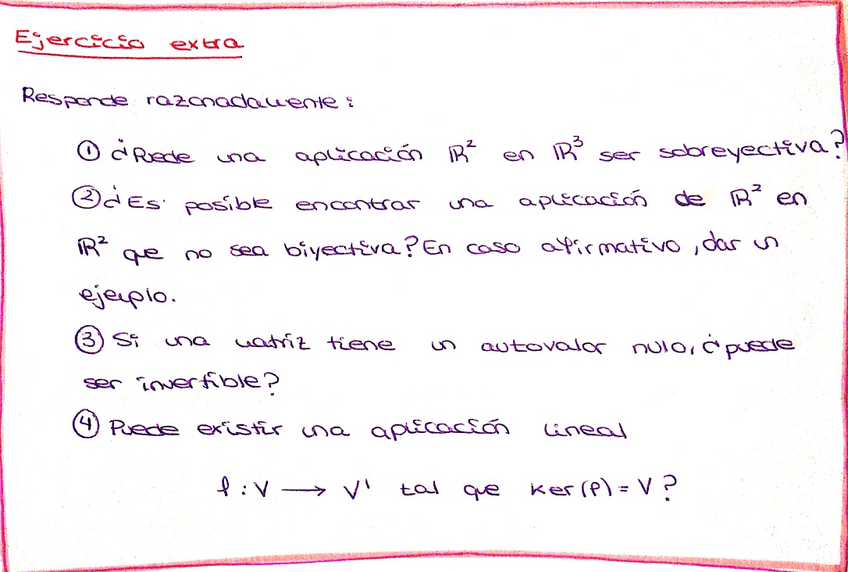 Ejercicio extra
Responde razonadamente:
① ¿Puede una aplicación ℝ² en ℝ³ ser sobreyectiva?
② ¿Es posible encontrar una aplicación de ℝ² en
ℝ² que no sea biyectiva? En caso afirmativo, dar un
ejemplo.
③ Si una matriz tiene un autovalor nulo, ¿puede
ser invertible?
④ Puede existir una aplicación lineal
f: V → V' tal que Ker(f) = V?